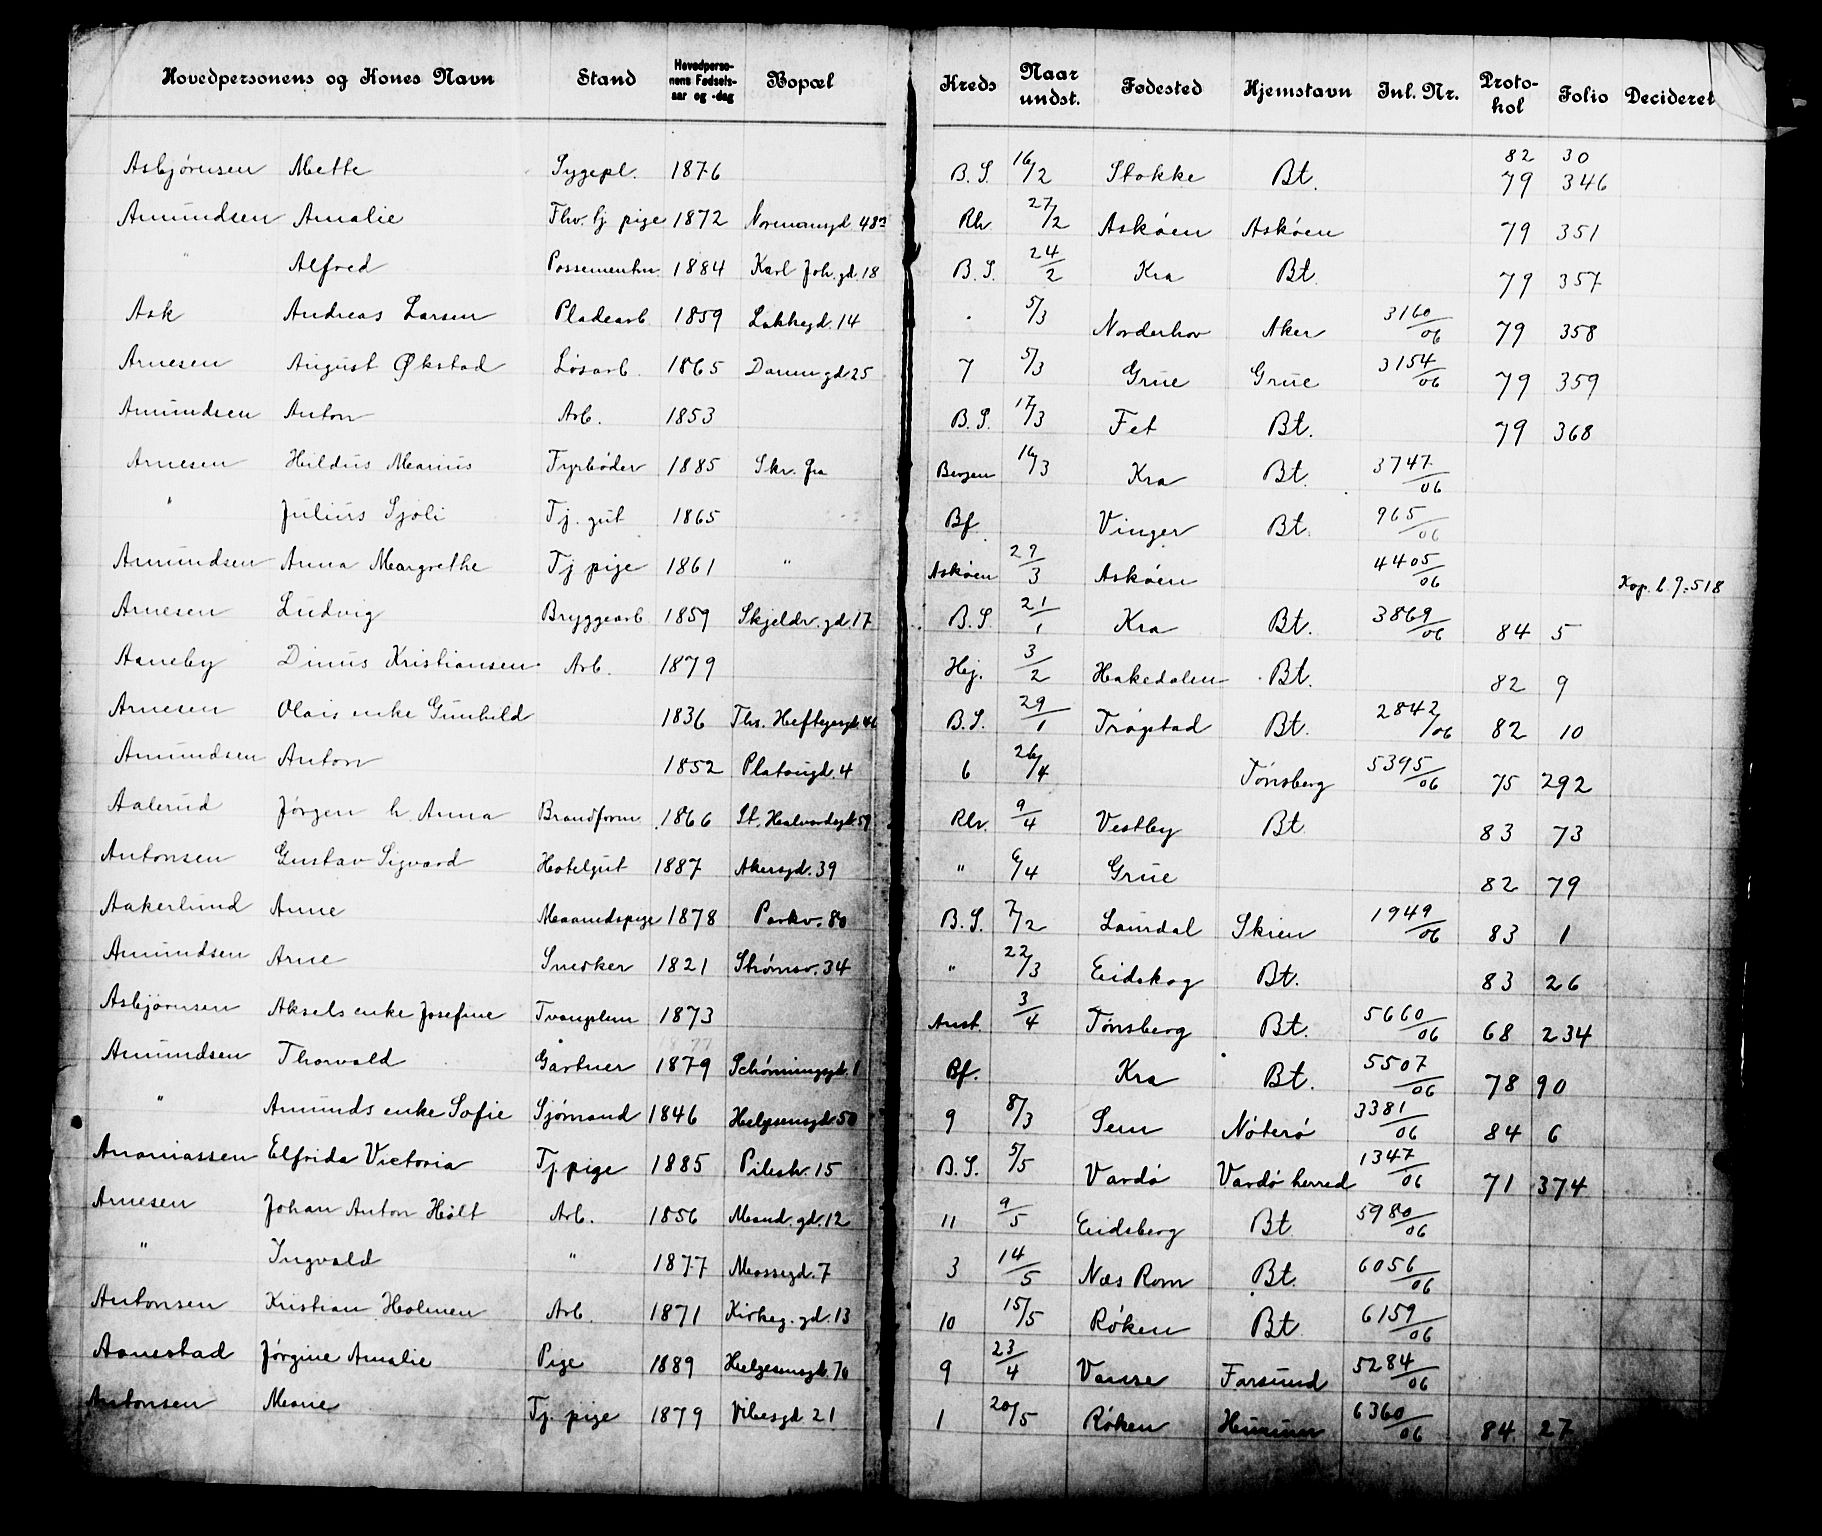 Hovedpersonens og Kones Navn Stand Hovedperso-nens Fødsels-aar og -dag Bopæl Kreds Naar undst. Fødested Hjemstavn Inl. Nr. Proto-kol Folio Decideret
Asbjørnsen Mette Sygepl. 1876 B. S. 16/2 Stokke Bt. 82 30 79 346
Amundsen Amalie Fhv. tj pige 1872 Normansgd 48 Rh 27/2 Askøen Askøen 79 351
" Alfred Possementm 1884 Karl Joh. gd. 18 B. S. 24/2 Kra Bt. 79 357
Ask Andreas Larsen Pladearb 1859 Lakkegd. 14 " 5/3 Norderhov Aker 3160/06 79 358
Arnesen August Økstad Løsarb. 1865 Damgd 25 7 5/3 Grue Grue 3154/06 79 359
Amundsen Anton Arb. 1853 B. S. 17/3 Fet Bt. 79 368
Arnesen Hildus Marius Fyrbøder 1885 Skr. fra Bergen 16/3 Kra Bt. 3747/06
" Julius Sjøli Tj. gut 1865 Bf. Vinger Bt. 965/06
Amundsen Anna Margrethe Tj pige 1861 " Askøen 29/3 Askøen 4405/06 Kop. b. 9. 518
Arnesen Ludvig Bryggearb 1859 Skjeldr. gd. 17 B. S. 21/1 Kra Bt. 3869/06 84 5
Aaneby Dinus Kristiansen Arb. 1879 Hej. 3/2 Hakedalen Bt. 82 9
Arnesen Olais enke Gunhild 1836 Ths. Heftyesgd. 46 B. S. 29/1 Trøgstad Bt. 2842/06 82 10
Amundsen Anton 1852 Platougd. 4 6 26/4 Tønsberg 5395/06 75 292
Aalerud Jørgen h Anna Brandform 1866 St. Halvardsgd. 59 Rh. 9/4 Vestby Bt. 83 73
Antonsen Gustav Sigvard Hotelgut 1887 Akersgd. 39 " 6/4 Grue 82 79
Aakerlund Anne Maanedspige 1878 Parkv. 80 B. S. 7/2 Laurdal Skien 1949/06 83 1
Amundsen Arne Snedker 1821 Strømsv. 34 " 22/3 Eidskog Bt. 83 26
Asbjørnsen Aksels enke Josefine 1873 Anst. 3/4 Tønsberg Bt. 5660/06 68 234
Amundsen Thorvald Gartner 1879 Schønningsgd. 1 Bf. Kra Bt. 5507/06 78 90
" Amunds enke Sofie Sjømand 1846 Helgesensgd. 50 9 8/3 Sem Nøterø 3381/06 84 6
Ananiassen Elfrida Victoria Tj pige 1885 Pilestr. 15 B. S. 5/5 Vardø Vardø herred 1347/06 71 374
Arnesen Johan Anton Holt Arb. 1856 Mand. gd. 12 11 9/5 Eidsberg Bt 5980/06
" Ingvald " 1877 Mossegd. 7 3 14/5 Næs Rom Bt. 6056/06
Antonsen Kristian Holmen Arb. 1871 Kirkeg. gd. 13 10 15/5 Røken Bt 6159/06
Aanestad Jørgine Amalie Pige 1889 Helgesensgd. 70 9 23/4 Vanse Farsund 5284/06
Antonsen Marie Tj. pige 1879 Vibesgd 21 1 20/5 Røken Hurum 6360/06 84 27